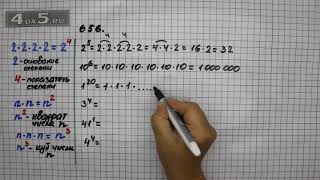 4DA5.RU
2·2·2·2=2⁴
2-основание
степени
4-показатель
степени
n·n=n²
n²-квадрат
числа n
n·n·n=n³
n³-куб числа
n
656.
2⁵=2·2·2·2·2=4·4·2=16·2=32
4 4
10⁶=10·10·10·10·10·10=1 000 000
1²⁰=1·1·1·.....
3⁴=
41¹=
4⁴=